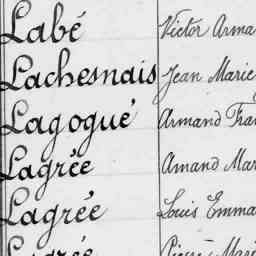 Labé Victor Arma
Lachesnais Jean Marie
Lagogué Armand Fran
Lagrée Amand Mar
Lagrée Louis Emma
Lagrée Pierre Marie